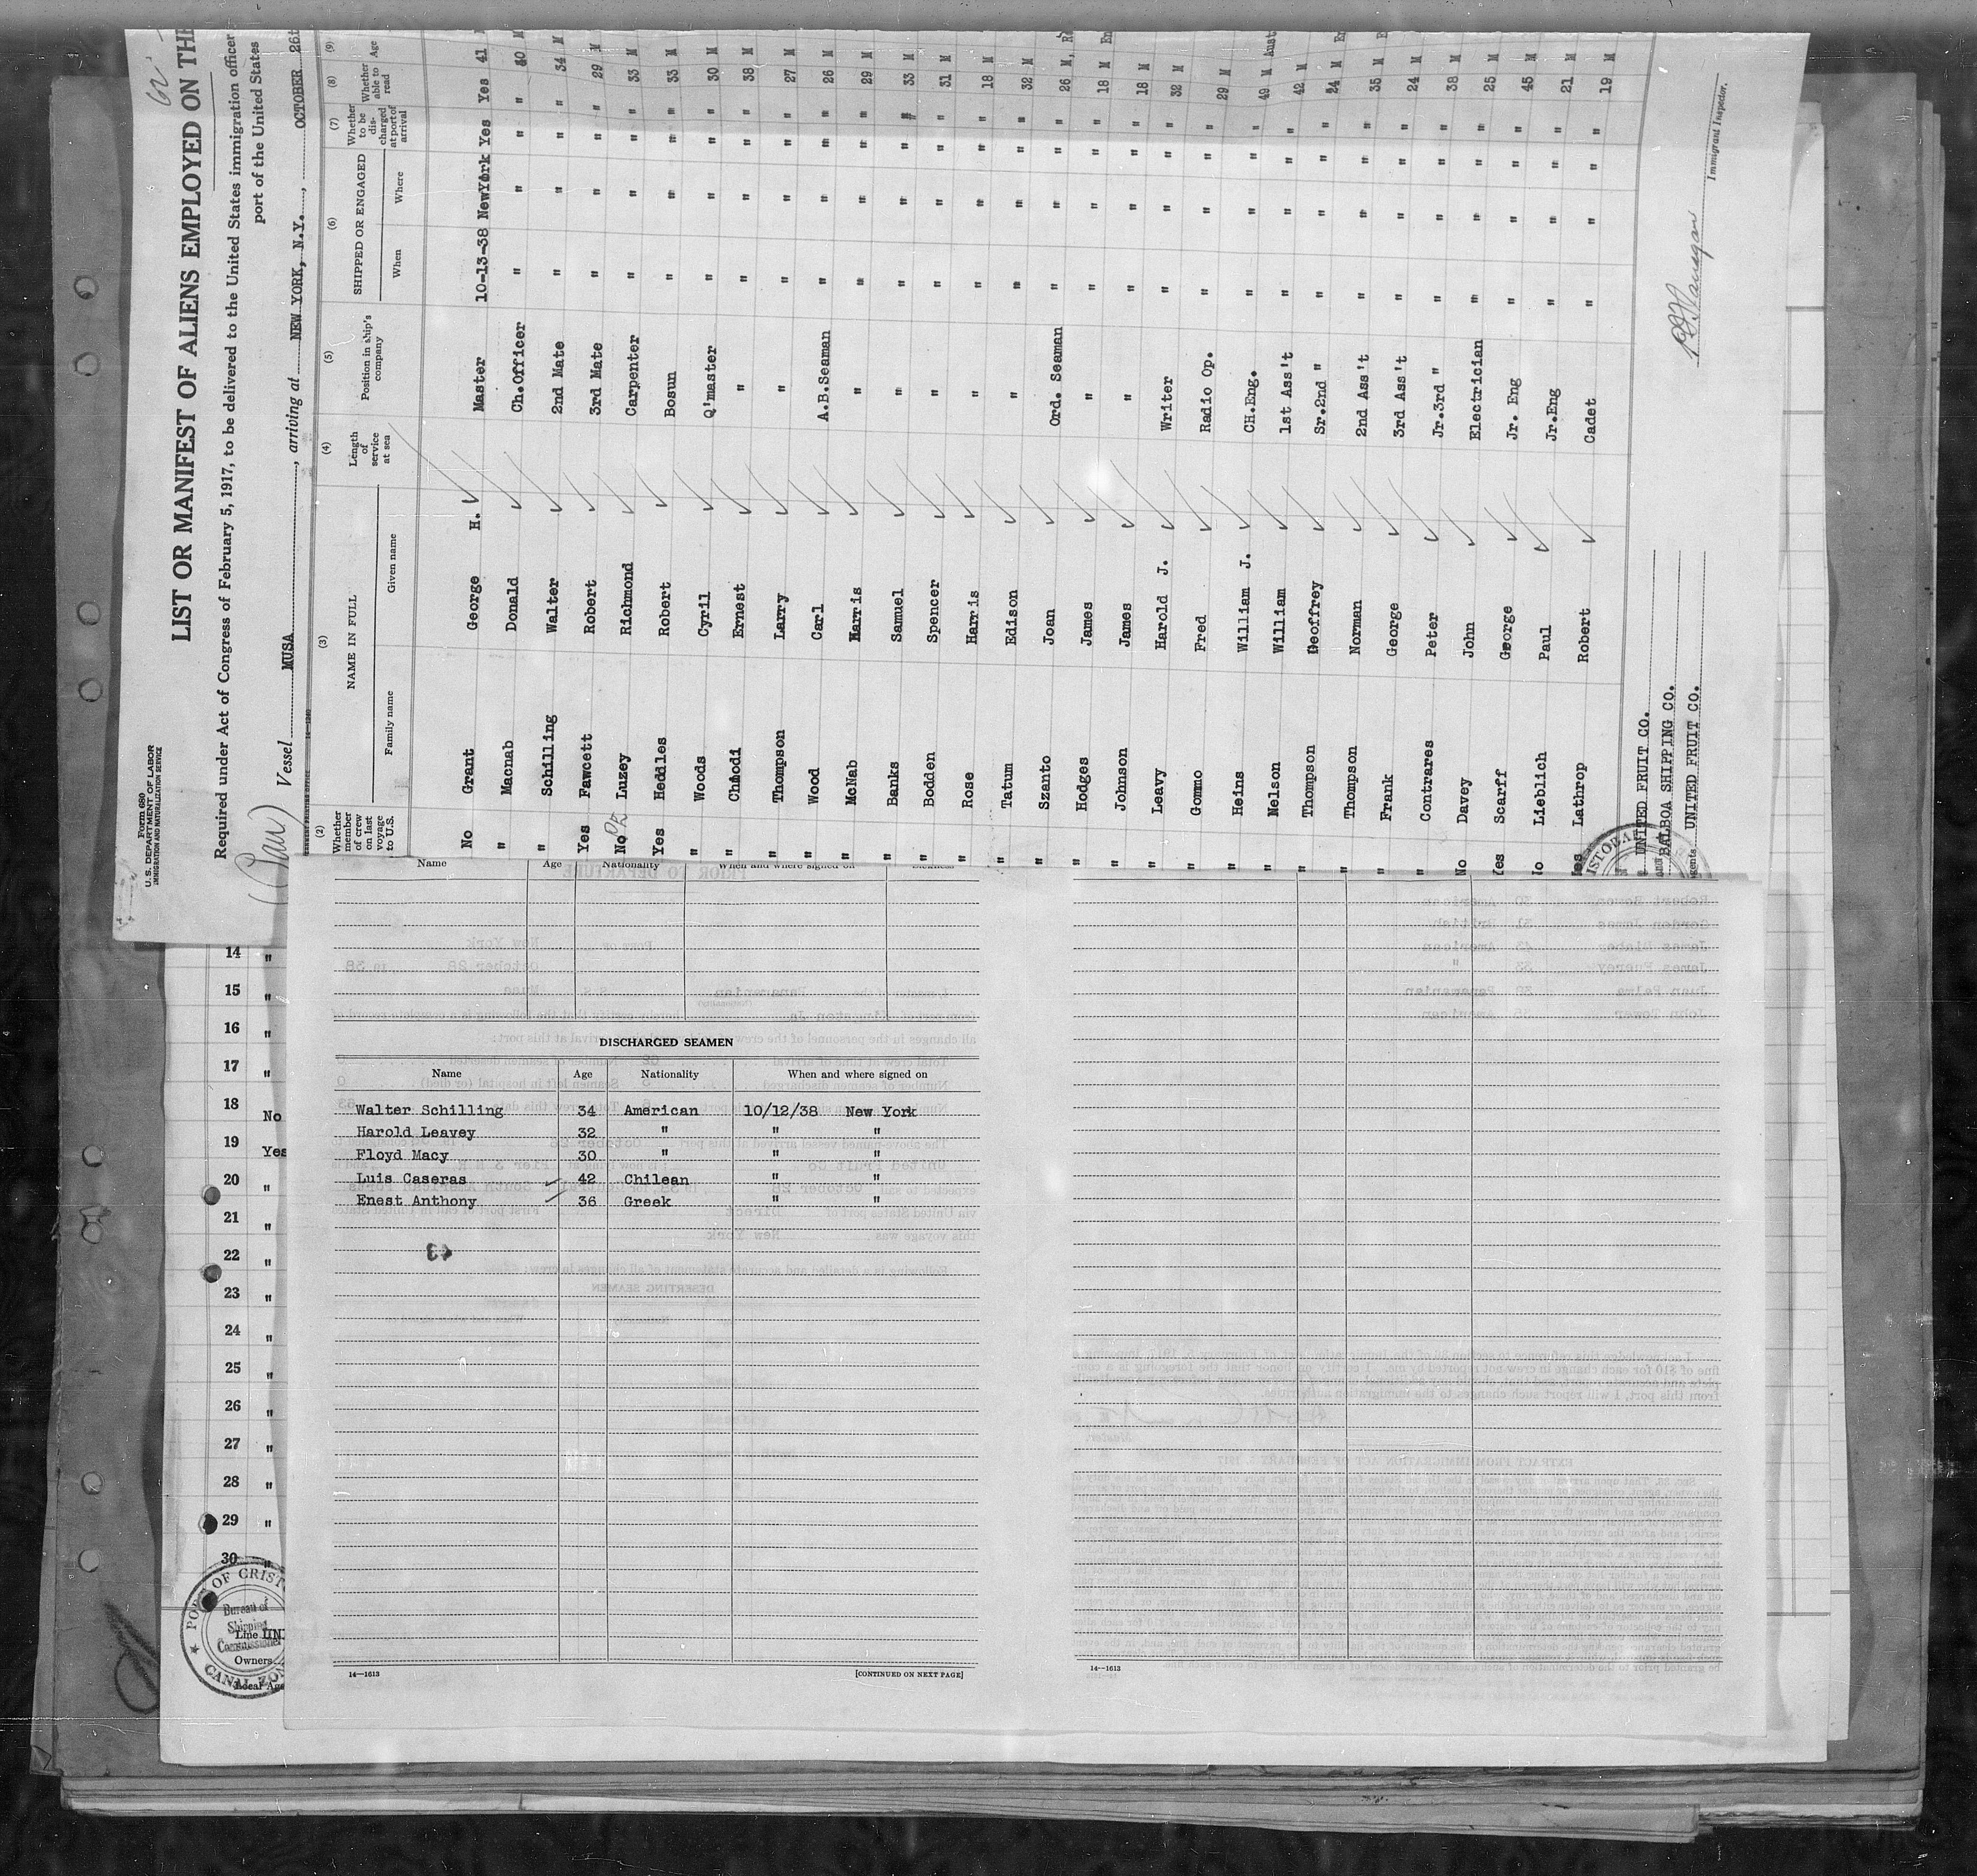 Form 680
U.S. DEPARTMENT OF LABOR
IMMIGRATION AND NATURALIZATION SERVICE
LIST OR MANIFEST OF ALIENS EMPLOYED ON THE
Required under Act of Congress of February 5, 1917, to be delivered to the United States immigration officer
port of the United States
Vessel MUSA, arriving at NEW YORK, N.Y., OCTOBER 26t
(2) (3) (4) (5) (6) (7) (8) (9)
Whether member of crew on last voyage to U.S. NAME IN FULL Family name Given name Length of service at sea Position in ship's company SHIPPED OR ENGAGED When Where Whether to be discharged at port of arrival Whether able to read Age
No Grant George H. Master 10-13-38 NewYork Yes Yes 41 M
" Macnab Donald Ch.Officer " " " " 40 M
" Schilling Walter 2nd Mate " " " " 34 M
Yes Fawcett Robert 3rd Mate " " " " 29 M
No Luzey Richmond Carpenter " " " " 33 M
Yes Heddles Robert Bosun " " " " 33 M
" Woods Cyril Q'master " " " " 30 M
" Chmodi Ernest " " " " " 38 M
" Thompson Larry " " " " " 27 M
" Wood Carl A.B.Seaman " " " " 26 M
" McNab Harris " " " " " 29 M
" Banks Samuel " " " " " 33 M
" Bodden Spencer " " " " " 31 M
" Rose Harris " " " " " 18 M
" Tatum Edison " " " " " 32 M
" Szanto Joan Ord. Seaman " " " " 26 M
" Hodges James " " " " " 18 M En
" Johnson James " " " " " 18 M
" Leavy Harold J. Writer " " " " 32 M
" Gommo Fred Radio Op. " " " " 29 M
" Heins William J. CH.Eng. " " " " 49 M Aust
" Melson William 1st Ass't " " " " 42 M
" Thompson Geoffrey Sr.2nd " " " " " 24 M En
" Thompson Norman 2nd Ass't " " " " 35 M E
" Frank George 3rd Ass't " " " " 24 M
" Contrares Peter Jr.3rd " " " " " 38 M
No Davey John Electrician " " " " 25 M
Yes Scarff George Jr. Eng " " " " 45 M
No Lieblich Paul Jr.Eng " " " " 21 M
Yes Lathrop Robert Cadet " " " " 19 M
UNITED FRUIT CO.
BALBOA SHIPPING CO.
UNITED FRUIT CO.
Immigrant Inspector.
Name Age Nationality When and where signed on
DISCHARGED SEAMEN
Name Age Nationality When and where signed on
Walter Schilling 34 American 10/12/38 New York
Harold Leavey 32 " " "
Floyd Macy 30 " " "
Luis Caseras 42 Chilean " "
Enest Anthony 36 Greek " "
14—1613 [CONTINUED ON NEXT PAGE]
14—1613
14 "
15 "
16 "
17 "
18 No
19 Yes
20 "
21 "
22 "
23 "
24 "
25 "
26 "
27 "
28 "
29 "
30 "
PORT OF CRISTO
Bureau of
Shipping
Commissioner
CANAL ZON
Line UN
Owners
Local Age